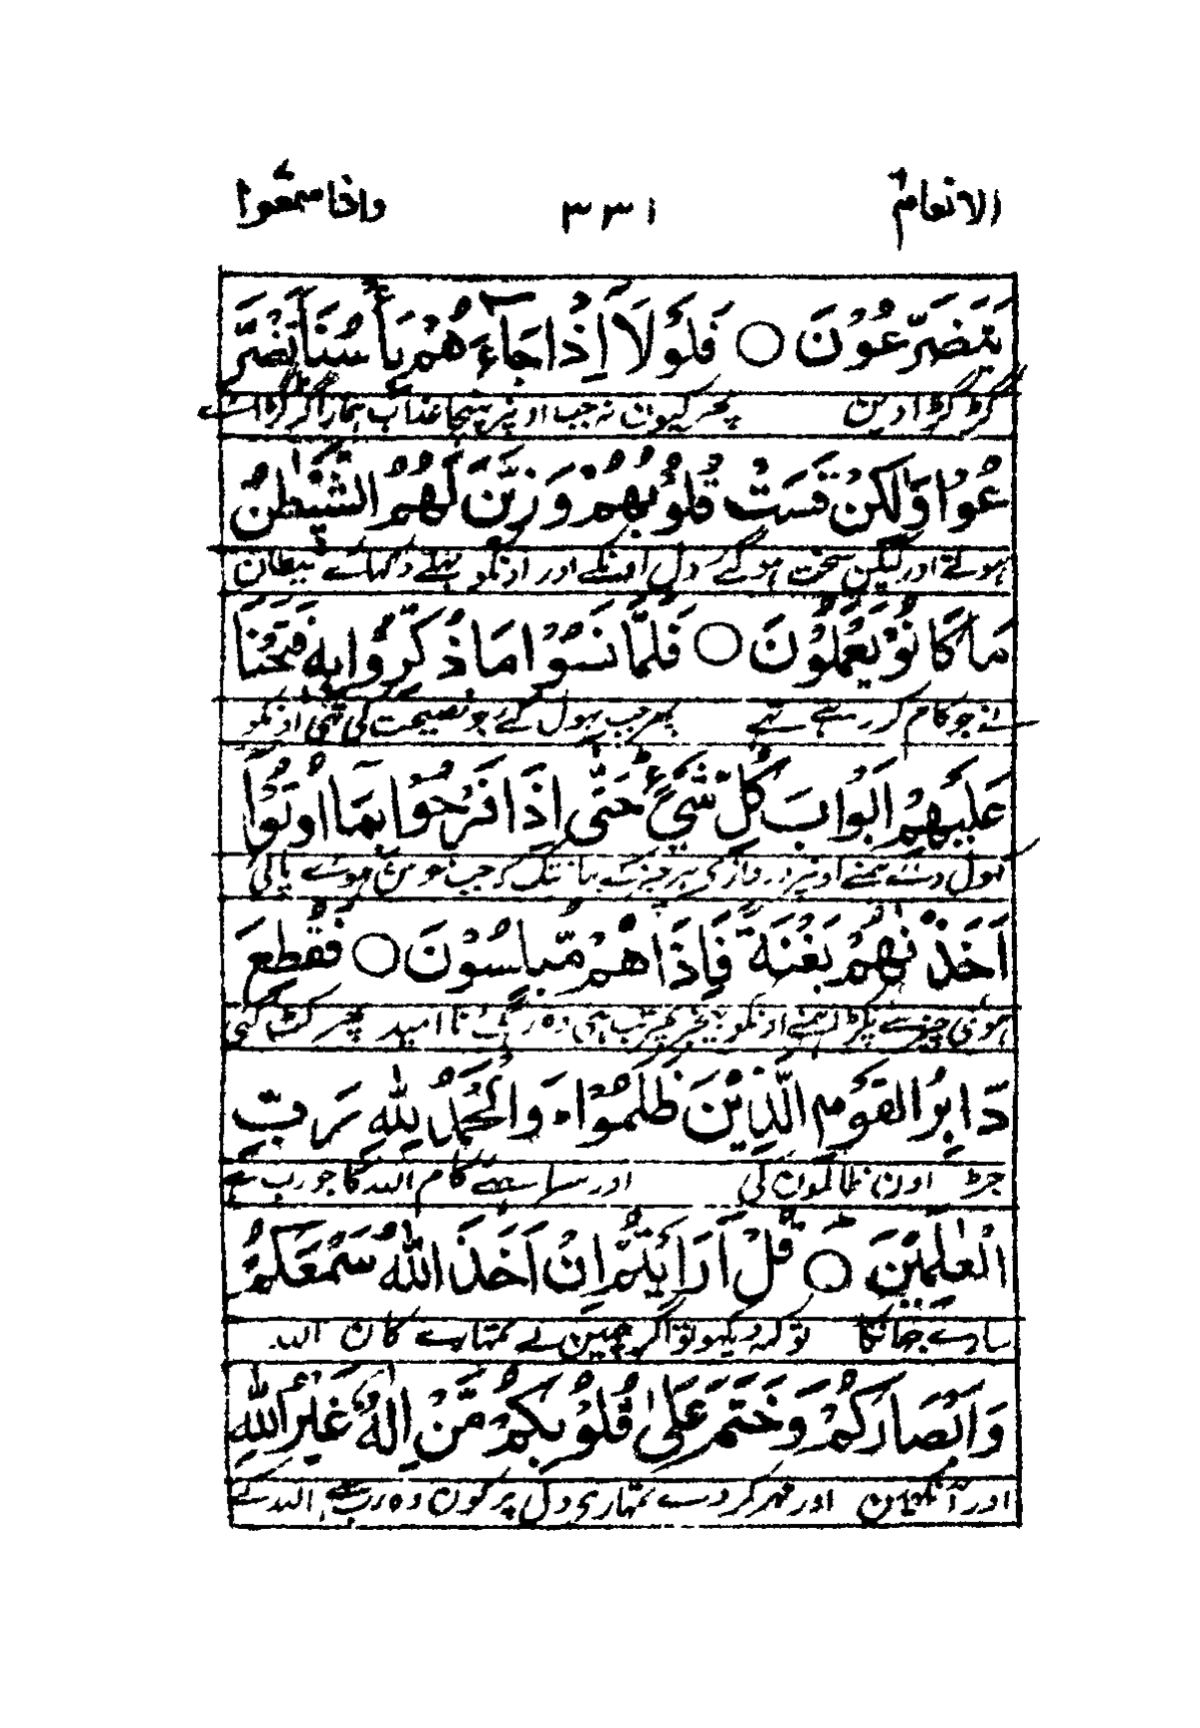 الانعام ٣٣١ واذاسمعوا
يَتَضَرَّعُوْنَ ○ فَلَوْلَاۤ اِذْ جَآءَهُمْ بَأْسُنَا تَضَرَّ
گڑگڑاوین پھر کیون نہ جب اونپر پہنچا عذاب ہمارا گڑگڑائے
عُوْا وَلٰكِنْ قَسَتْ قُلُوْبُهُمْ وَزَيَّنَ لَهُمُ الشَّيْطٰنُ
ہوتے اور لیکن سخت ہوگئے دل اونکے اور اونکو بھلے دکھلائے شیطان
مَا كَانُوْ يَعْمَلُوْنَ ○ فَلَمَّا نَسُوْا مَا ذُكِّرُوْا بِهٖ فَتَحْنَا
نے جو کام کر رہے تہے پھر جب بھول گئے جو نصیحت کی تھی اونکو
عَلَيْهِمْ اَبْوَابَ كُلِّ شَيْءٍ حَتّٰى اِذَا فَرِحُوْا بِمَا اُوْتُوْا
کھول دئے ہمنے اونپر دروازے ہر چیز کے یہانتک کہ جب خوش ہوئے پائی
اَخَذْنٰهُمْ بَغْتَةً فَاِذَا هُمْ مُّبْلِسُوْنَ ○ فَقُطِعَ
ہوئی چیز سے پکڑا ہمنے اونکو بیخبر پھر تب ہی وہ رہ گئے ناامید پھر کٹ گئی
دَابِرُ الْقَوْمِ الَّذِيْنَ ظَلَمُوْا ۚ وَالْحَمْدُ لِلّٰهِ رَبِّ
جڑ اون ظالمون کی اور سراہئے کام اللہ کا جو رب ہے
الْعٰلَمِيْنَ ○ قُلْ اَرَاَيْتُمْ اِنْ اَخَذَ اللّٰهُ سَمْعَكُمْ
سارے جہان کا تو کہہ دیکھو تو اگر چھین لے تمہارے کان اللہ
وَاَبْصَارَكُمْ وَخَتَمَ عَلٰى قُلُوْبِكُمْ مَّنْ اِلٰهٌ غَيْرُ اللّٰهِ
اور آنکھین اور مہر کر دے تمہاری دل پر کون وہ رب ہے اللہ کے